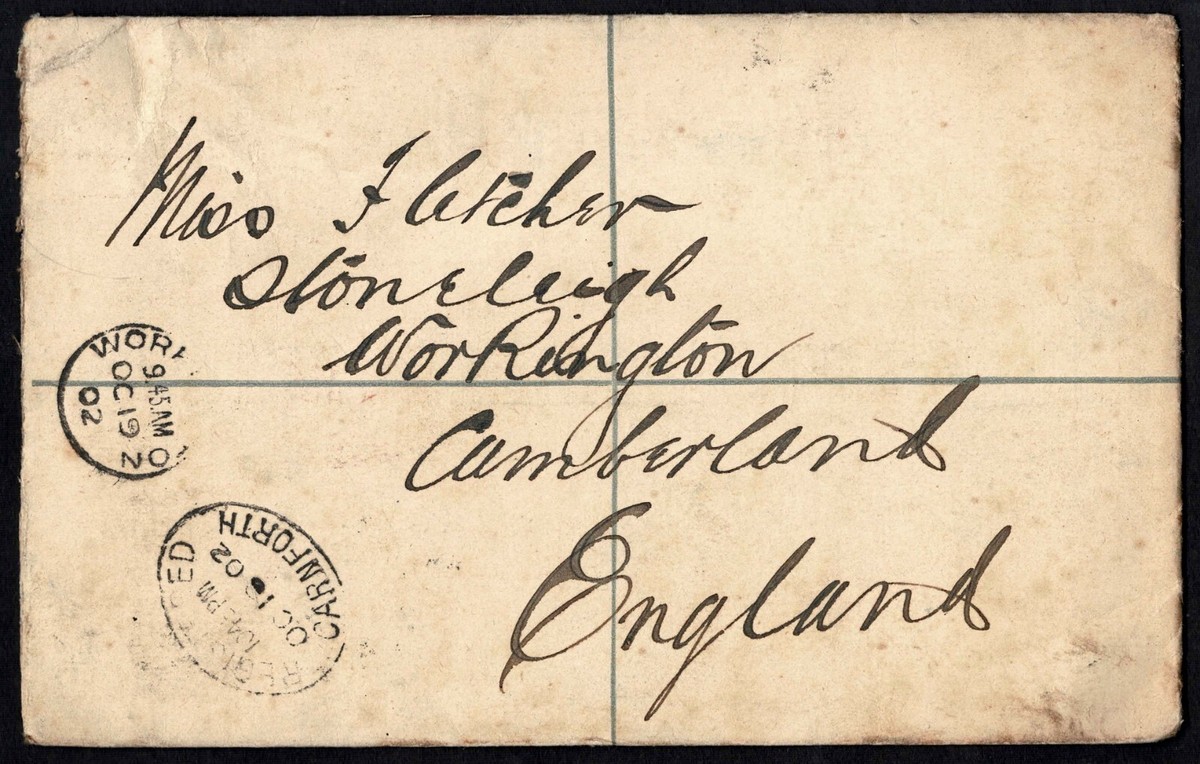 Miss Fletcher
Stoneleigh
Workington
Cumberland
England
WORK
9.45AM
OC 19
02
CARNFORTH
02
PM